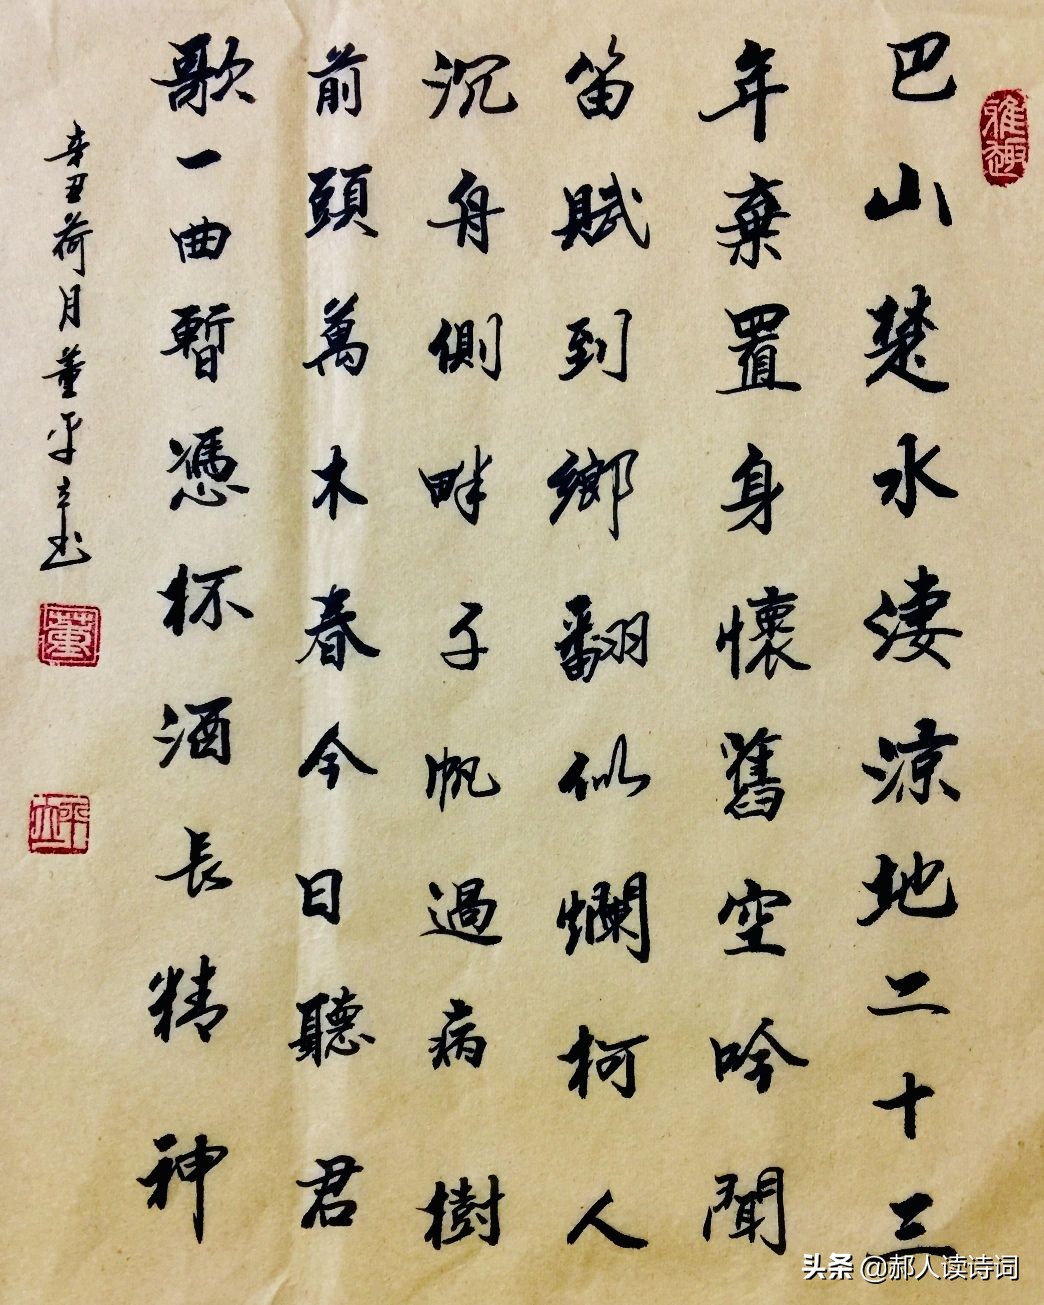 雅趣
巴山楚水淒涼地二十三
年棄置身懷舊空吟聞
笛賦到鄉翻似爛柯人
沉舟側畔千帆過病樹
前頭萬木春今日聽君
歌一曲暫憑杯酒長精神
辛丑荷月董平立书
董
平立
头条 @郝人读诗词